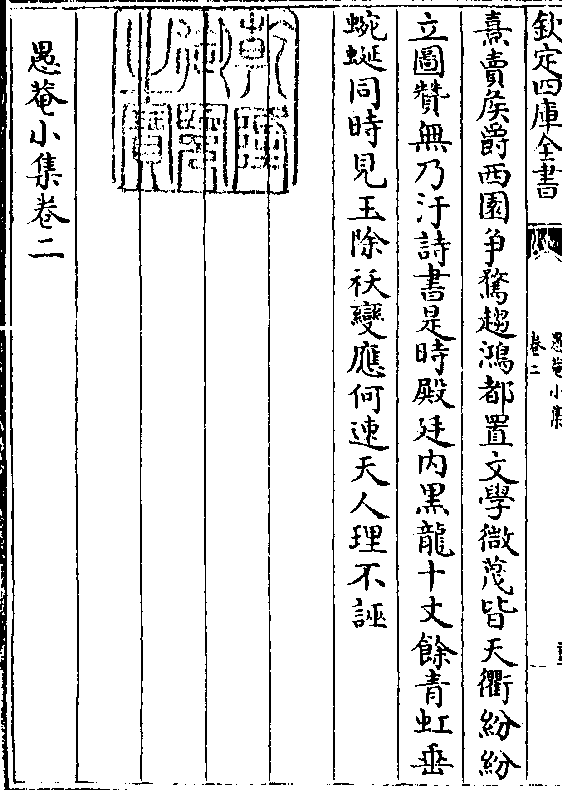 欽定四庫全書
愚菴小集
卷二
熹賣侯爵西園争騖趨鴻都置文學微蔑皆天衢紛紛
立圖贊無乃汙詩書是時殿廷内黒龍十丈餘青虹垂
蜿蜒同時見玉除祅變應何速天人理不誣
乾隆御覽之寶
愚菴小集卷二